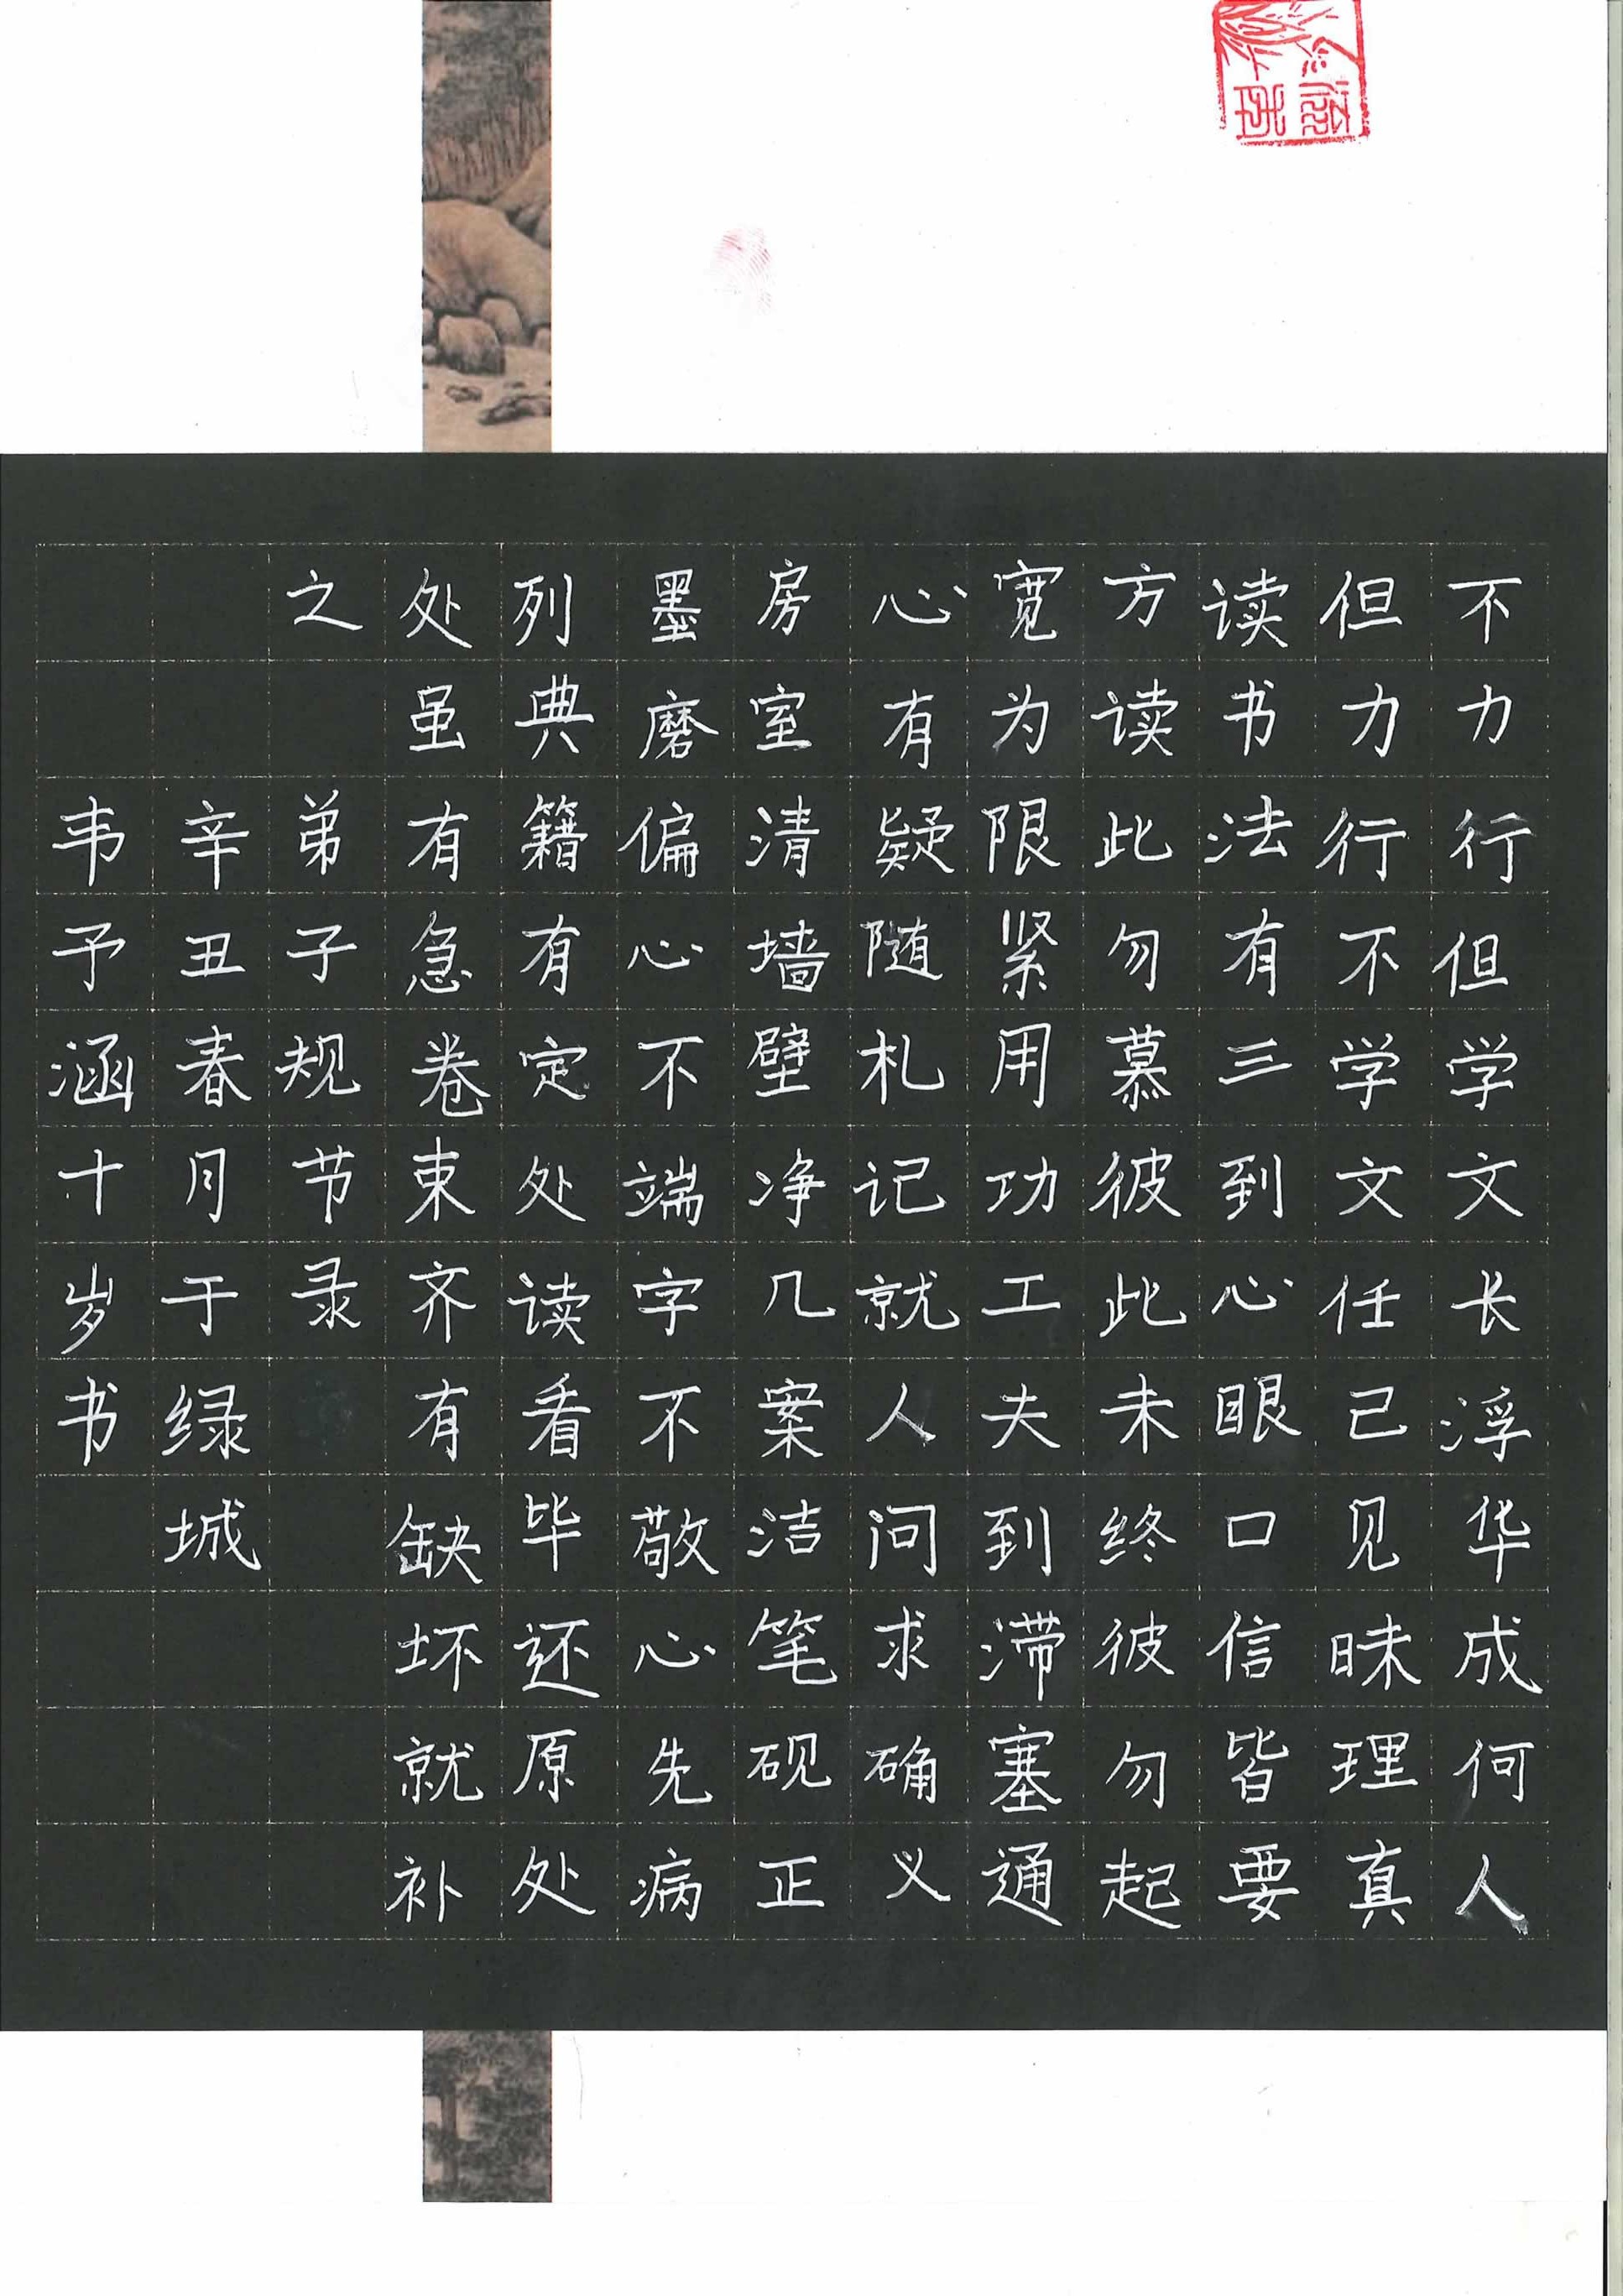 不力行但学文长浮华成何人
但力行不学文任己见昧理真
读书法有三到心眼口信皆要
方读此勿慕彼此未终彼勿起
宽为限紧用功工夫到滞塞通
心有疑随札记就人问求确义
房室清墙壁净几案洁笔砚正
墨磨偏心不端字不敬心先病
列典籍有定处读看毕还原处
处虽有急卷束齐有缺坏就补
之弟子规节录
辛丑春月于绿城
韦予涵十岁书